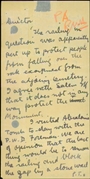 Director
The railing in
question was apparently
put up to protect people
from falling over the
rock escarpment from
the adjoining cemetery
I agree with Salem
that it does not in any
way protect the
Monument.
I visited Abraham
Tomb to-day with the
D.O. & Forman we are
of opinion that the only
thing would be to move
the railing and block
the gap by a stone wall